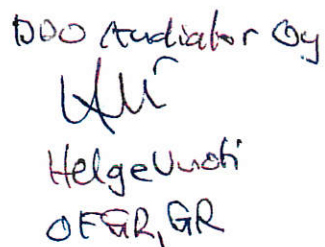 BDO Audiator Oy
Helge Vuoti
OFGR, GR